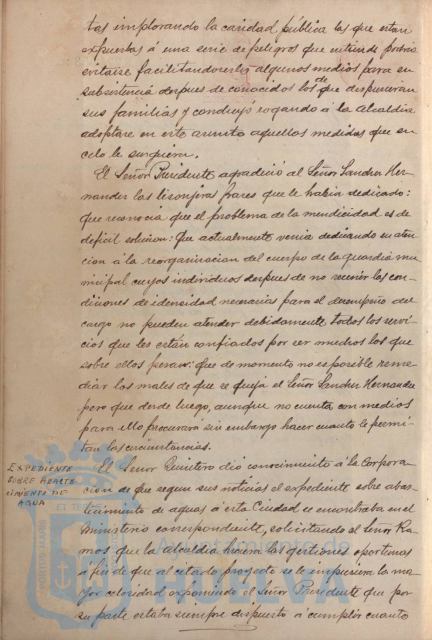 tas implorando la caridad pública las que estan
expuestas á una serie de peligros que entiende podria
evitarse facilitandoseles algunos medios para su
subsistencia despues de conocidos los de que dispusieran
sus familias y concluyó rogando á la Alcaldia
adoptare en este asunto aquellas medidas que su
celo le surgiera.
El Señor Presidente agradeció al Señor Sanchez Her-
nandez las lisonjeras frases que le habia dedicado:
que reconocia que el problema de la mendicidad es de
deficil solucion: Que actualmente venia dedicando su aten
cion á la reorganizacion del cuerpo de la guardia mu
nicipal cuyos individuos despues de no reunir las con-
diciones de idoneidad necesarias para el desempeño del
cargo no pueden atender debidamente todos los servi
cios que les están confiados por ser muchos los que
sobre ellos pesan: que de momento no es posible reme
diar los males de que se queja el Señor Sanchez Hernandez
pero que desde luego, aunque no cuenta con medios
para ello procurara sin embargo hacer cuanto le permi
tan las circunstancias.
EXPEDIENTE
SOBRE ABASTE
CIMIENTO DE
AGUA
El Señor Quintero dió conocimiento á la Corpora
cion de que segun sus noticias el expediente sobre abas-
tecimiento de aguas á esta Ciudad se encontraba en el
Ministerio correspondiente, solicitando el Señor Ra
mos que la alcaldia hiciera las gestiones oportunas
á fin de que al citado proyecto se le imprimiera la ma
yor celeridad exponiendo el Señor Presidente que por
su parte estaba siempre dispuesto á cumplir cuanto
Ayuntamiento de
HUELVA